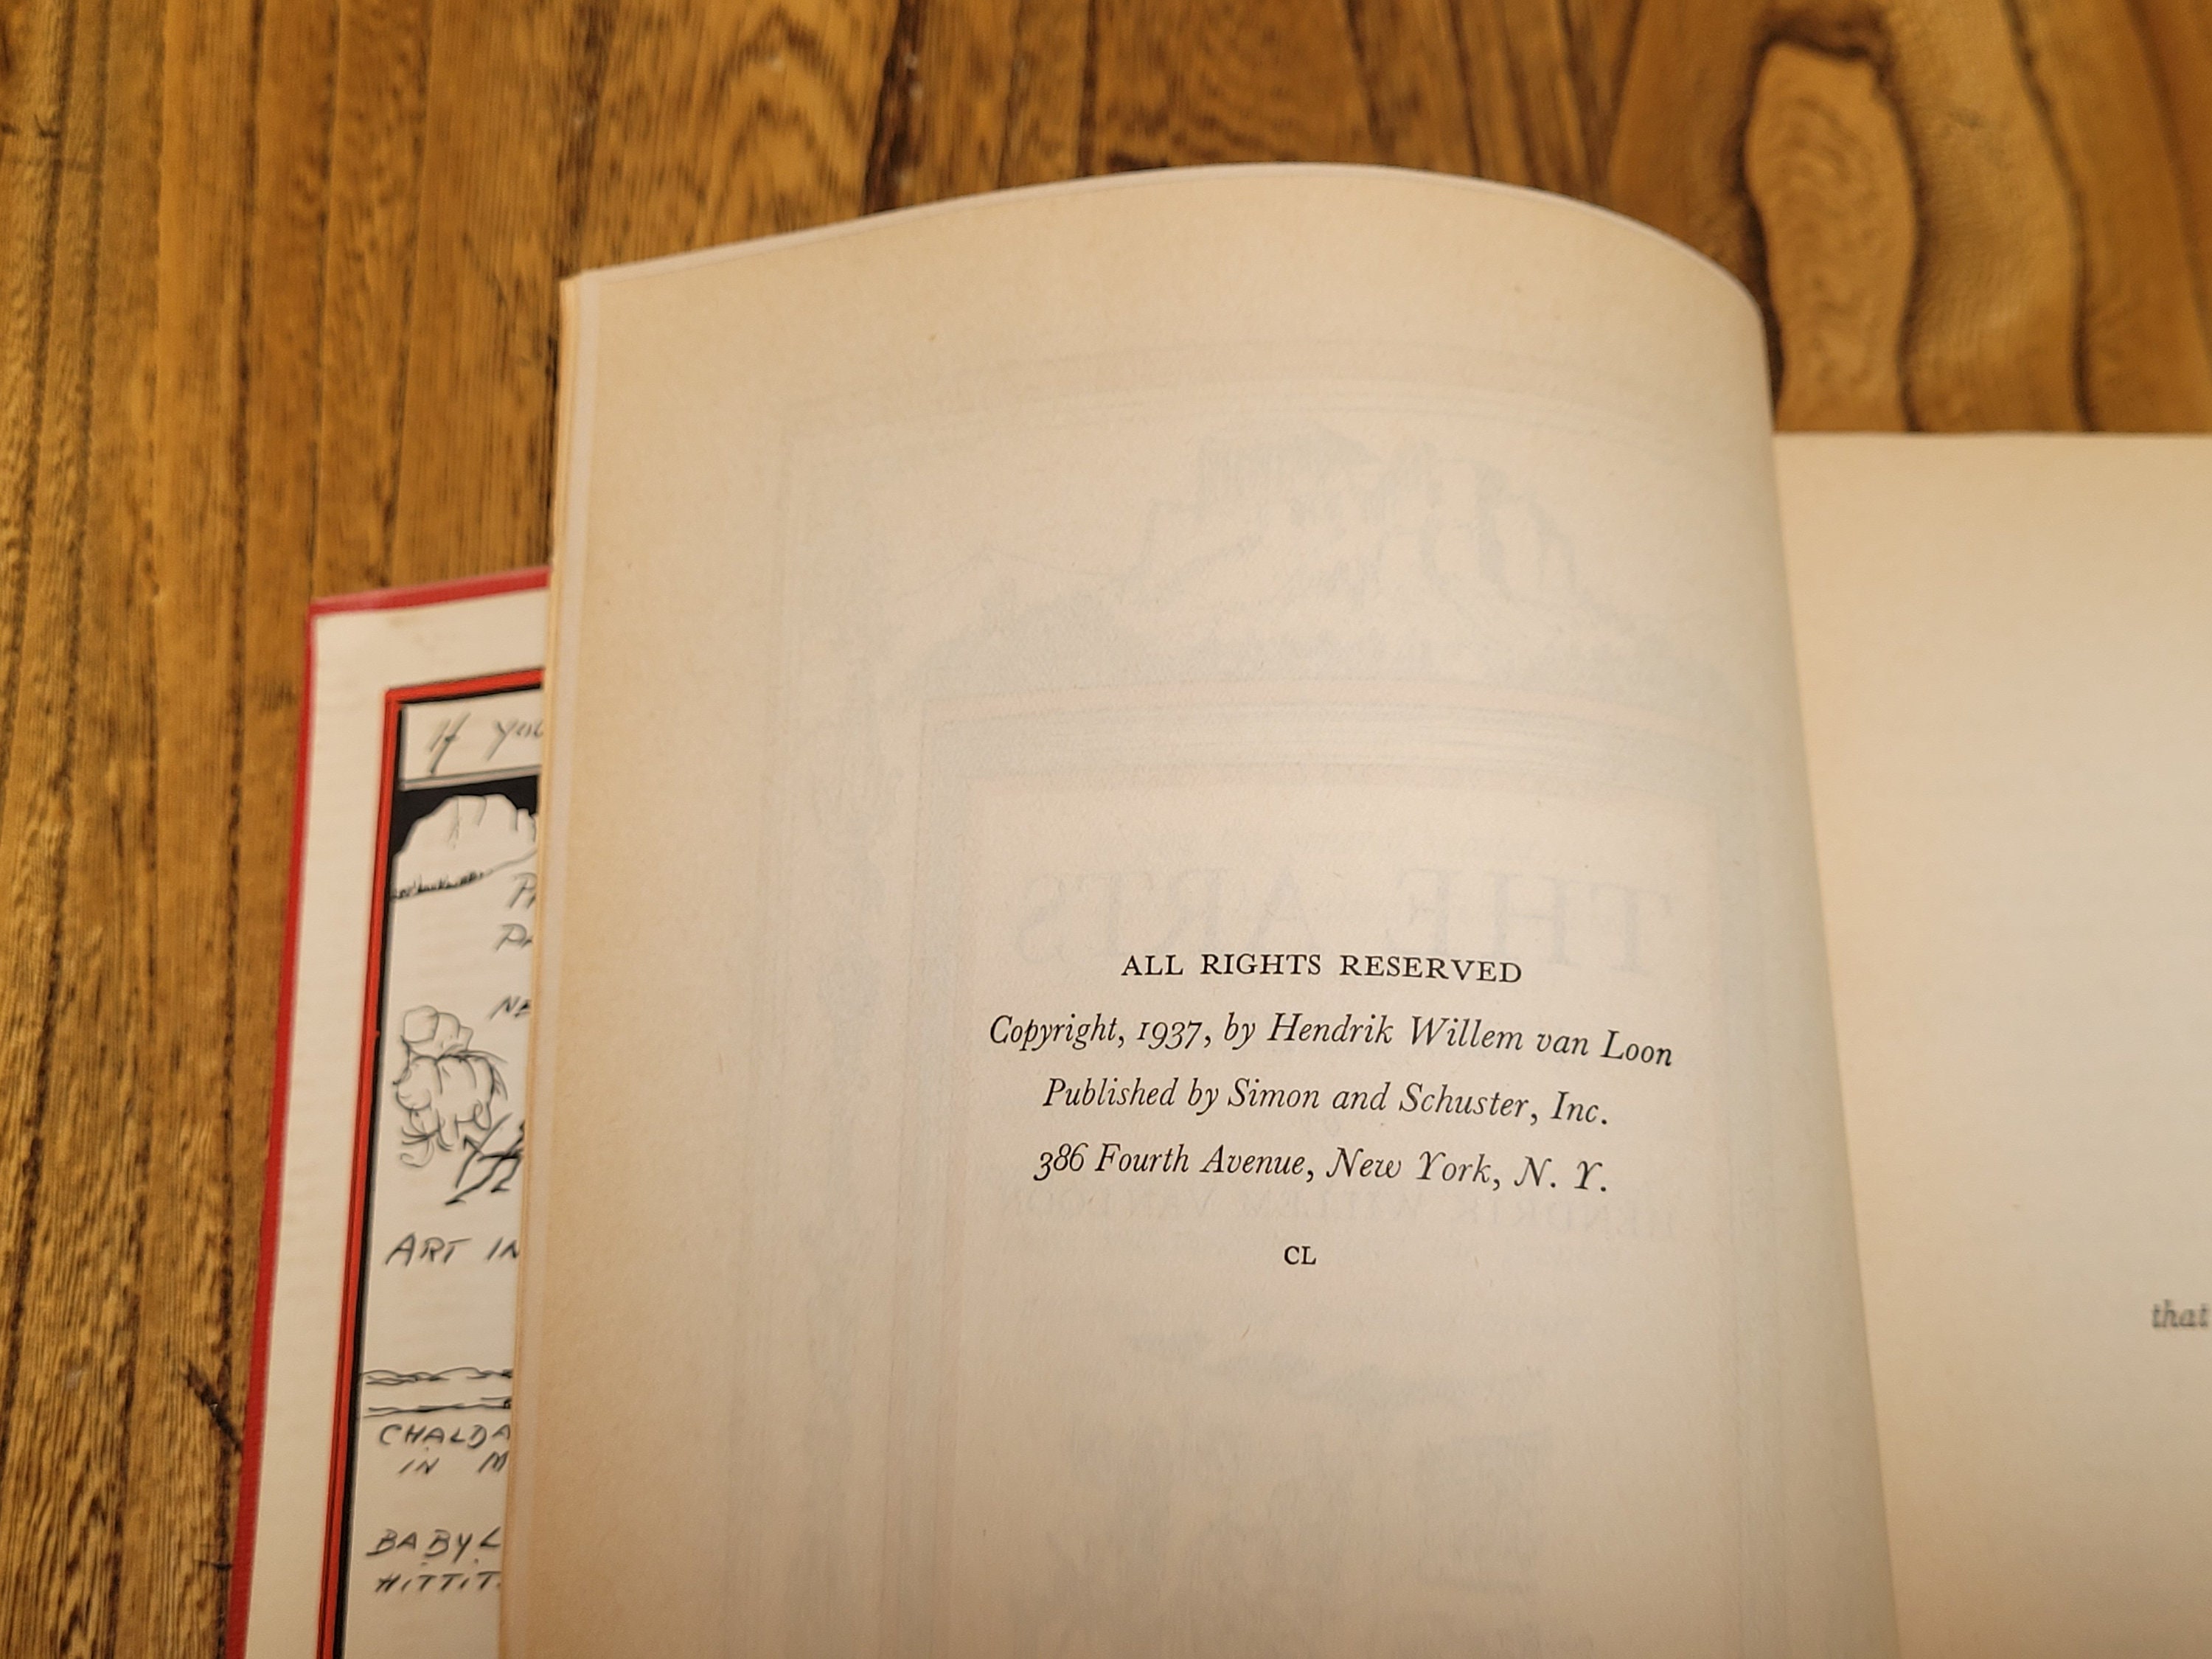 If you
ART IN
CHALDA
IN M
BABYL
HITTIT
THE ARTS
ALL RIGHTS RESERVED
Copyright, 1937, by Hendrik Willem van Loon
Published by Simon and Schuster, Inc.
386 Fourth Avenue, New York, N. Y.
HENDRIK WILLEM VAN LOON
CL
that